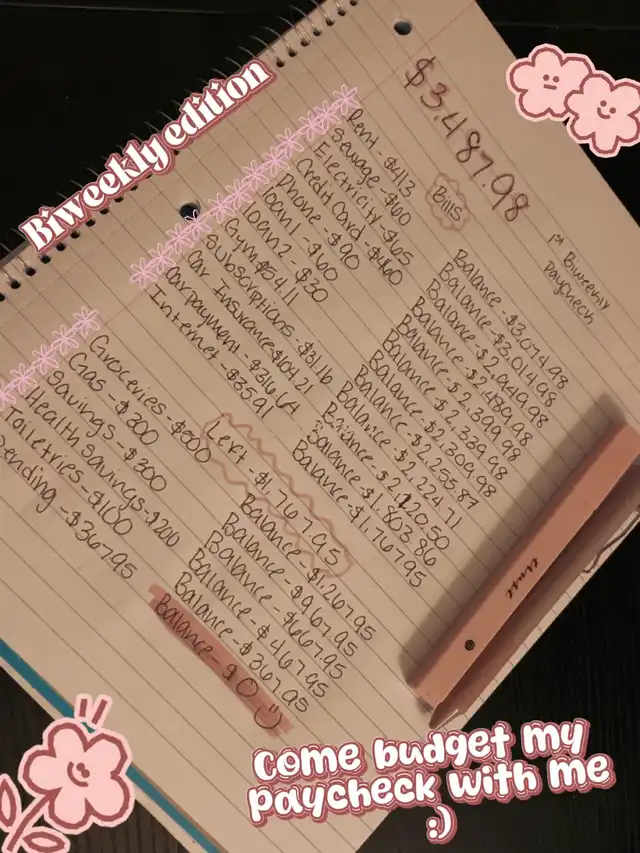 Biweekly edition
$3,487.98
1st Biweekly
Paycheck
Bills
Rent - $413
Balance - $3,074.98
Sewage - $60
Balance - $3,014.98
Electricity - $65
Balance - $2,949.98
Credit Card - $460
Balance - $2,489.98
Phone - $90
Balance - $2,399.98
loan 1 - $60
Balance - $2,339.98
loan 2 - $30
Balance - $2,309.98
Gym $54.11
Balance - $2,255.87
Subscriptions - $31.16
Balance - $2,224.71
Car Insurance - $104.21
Balance - $2,120.50
Car payment - $316.64
Balance - $1,803.86
Internet - $35.91
Balance - $1,767.95
Left - $1,767.95
Groceries - $500
Balance - $1,267.95
Gas - $300
Balance - $967.95
Savings - $300
Balance - $667.95
Health Savings - $200
Balance - $467.95
Toiletries - $100
Balance - $367.95
pending - $367.95
Balance - $0
Come budget my
paycheck with me
:)